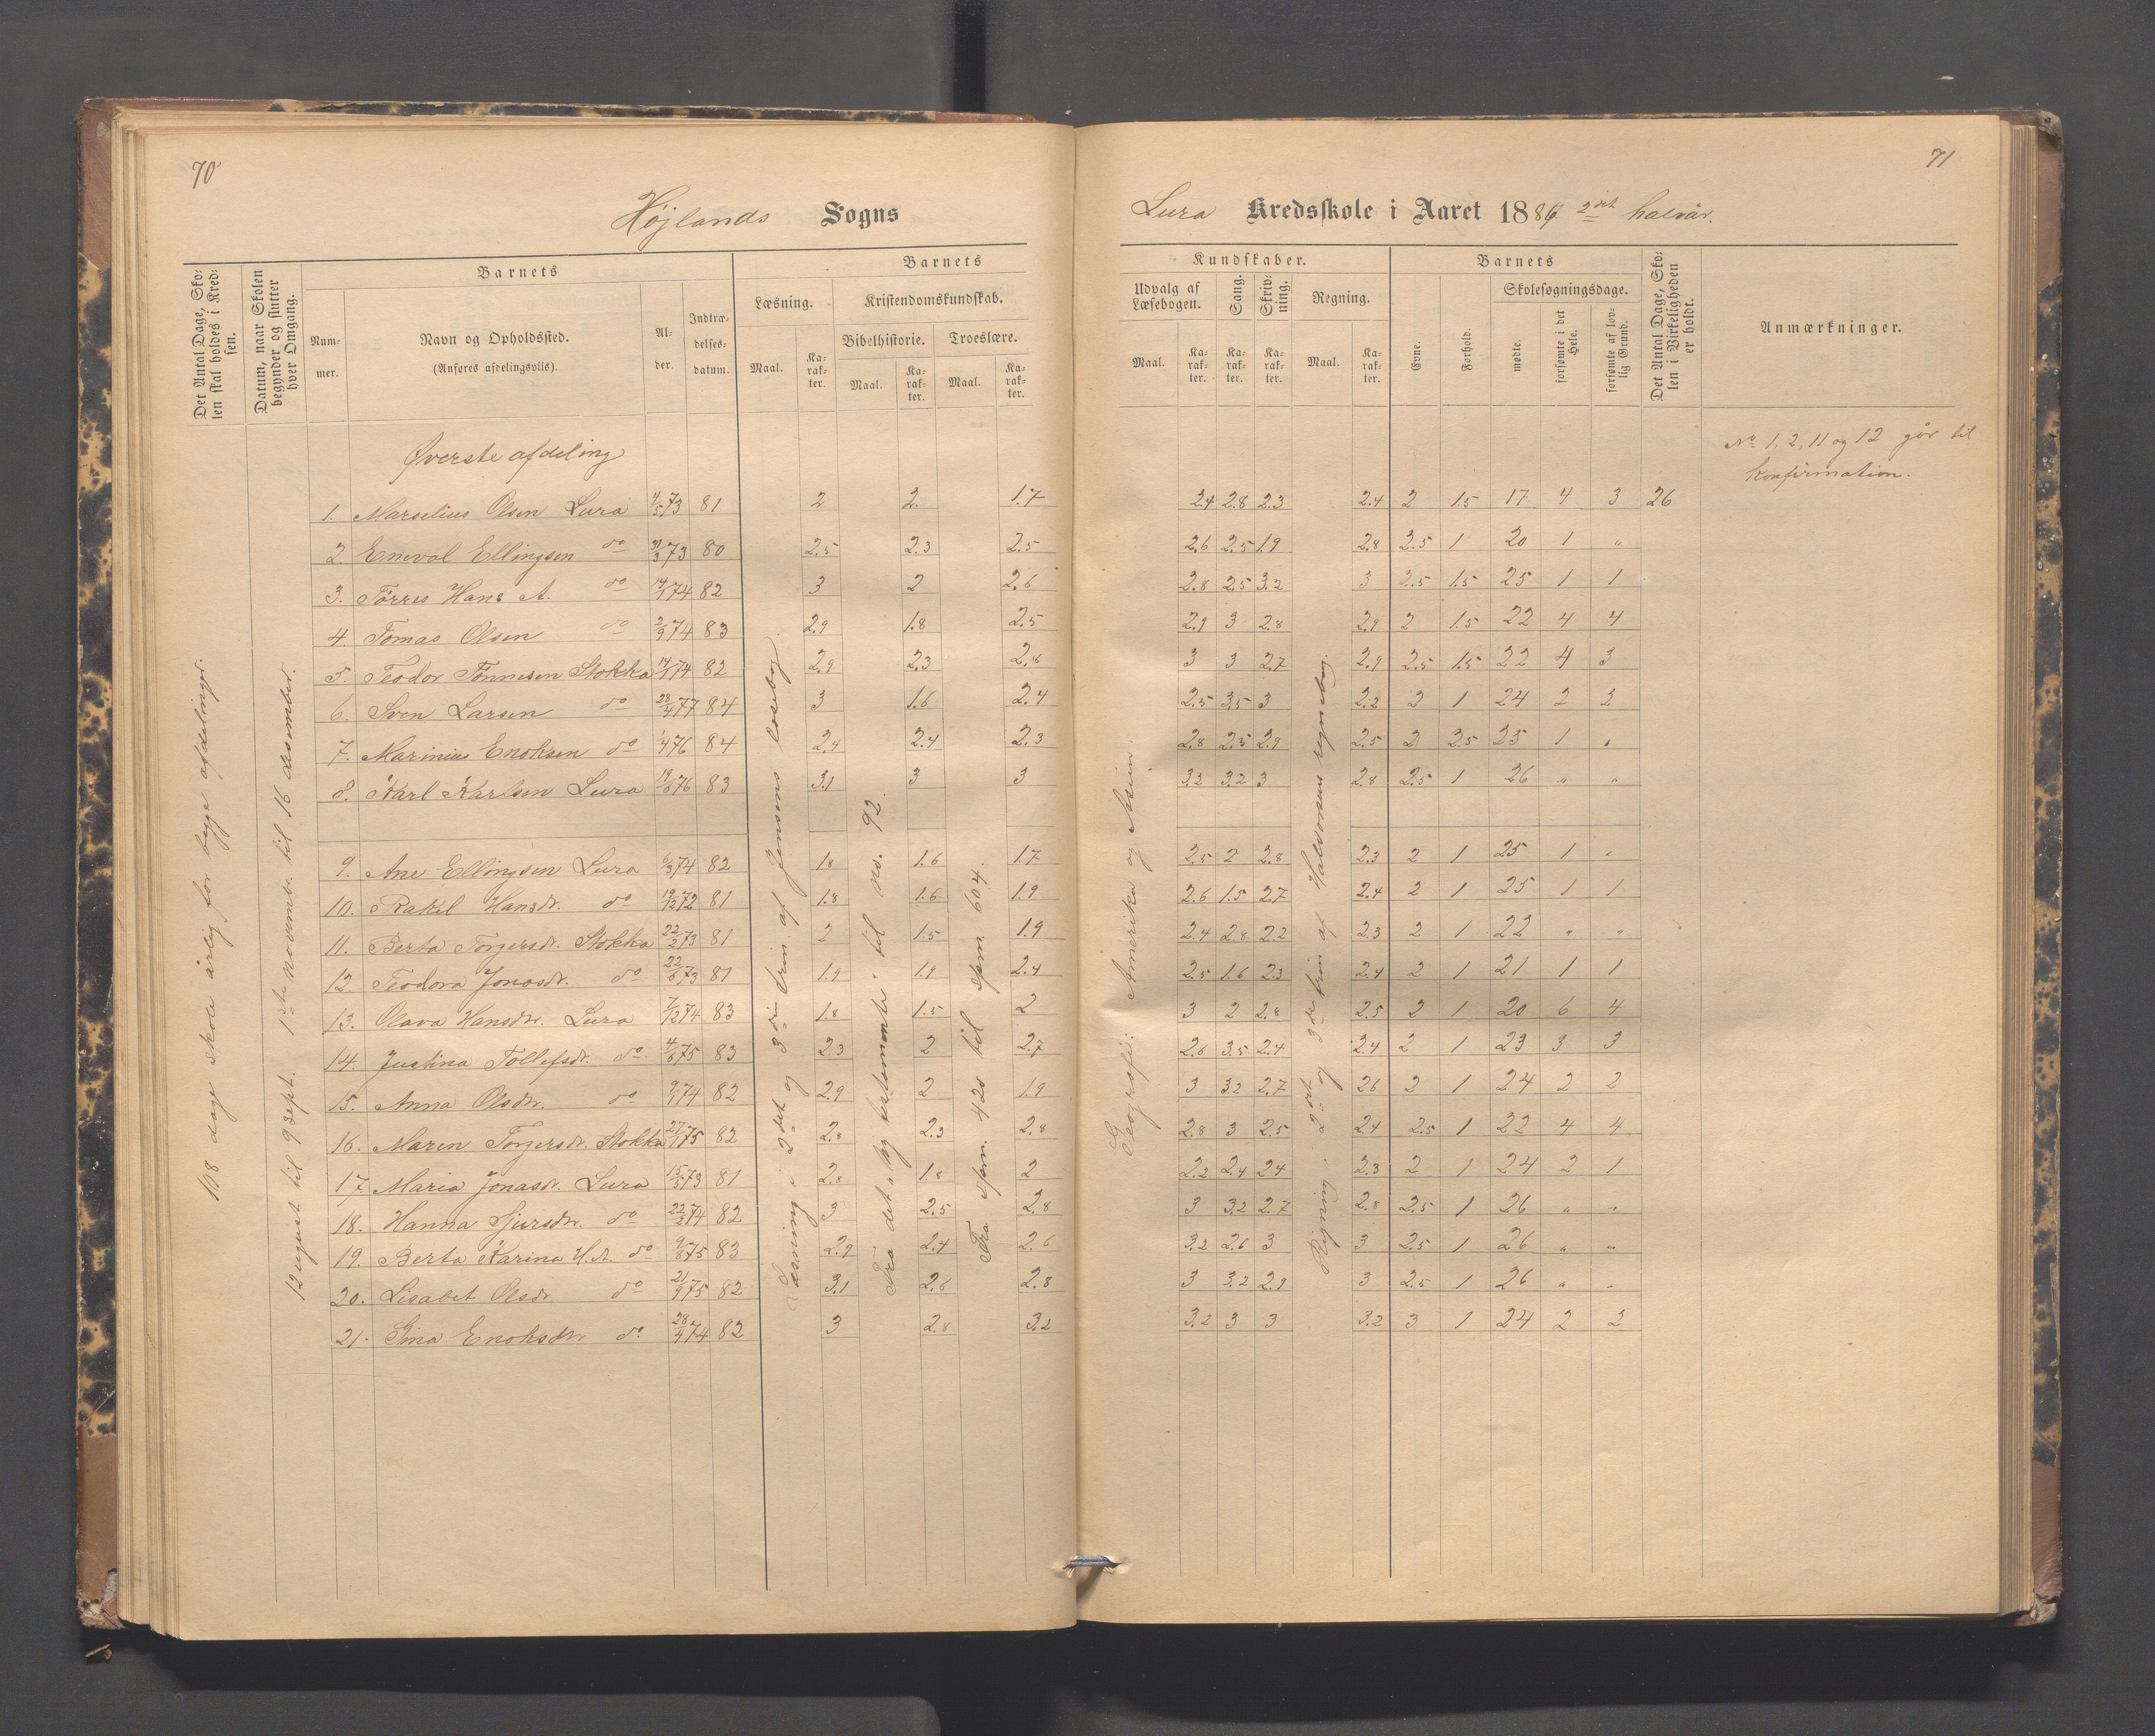 70
Höjlands Sogns
Det Antal Dage, Skolen skal holdes i Kredsen.
Datum, naar Skolen begynder og slutter hver Omgang.
Barnets
Nummer.
Navn og Opholdssted.
(Anføres afdelingsviis).
Alder.
Indtrædelsesdatum.
Barnets
Læsning.
Kristendomskundskab.
Bibelhistorie.
Troeslære.
Maal.
Karakter.
Maal.
Karakter.
Maal.
Karakter.
108 dage skole årlig for begge afdelinger.
12 august til 9 sept. 1ste novembr. til 16 desember.
Læsning i 2det og 3die trin af Jensens læsebog.
Fra det "ny testamente" til no. 92.
Fra spm. 420 til spm. 604.
Øverste afdeling
1. Marselius Olsen Lura 4/5 73 81 2 2. 1.7
2. Eneval Ellingsen do 31/3 73 80 2.5 2.3 2.5
3. Tørres Hans A. do 14/1 74 82 3 2 2.6
4. Tomas Olsen do 2/9 74 83 2.9 1.8 2.5
5. Teodor Tønnesen Stokka 14/1 74 82 2.9 2.3 2.8
6. Sven Larsen do 28/4 77 84 3 1.6 2.4
7. Marinius Enoksen do 1/4 76 84 2.4 2.4 2.3
8. Karl Karlsen Lura 19/6 76 83 3.1 3 3
9. Ane Ellingsen Lura 6/3 74 82 1.8 1.6 1.7
10. Rakel Hansdr. do 19/12 72 81 1.8 1.6 1.9
11. Berta Torgersdr. Stokka 22/2 73 81 2 1.5 1.9
12. Teodora Jonasdr. do 22/6 73 81 1.9 1.9 2.4
13. Olava Hansdtr. Lura 7/12 74 83 1.8 1.5 2
14. Justina Tollefsdr. do 4/6 75 83 2.3 2 2.7
15. Anna Olsdtr. do 9/1 74 82 2.9 2 1.9
16. Maren Torgersdr. Stokka 27/1 75 82 2.8 2.3 2.8
17. Maria Jonasdr. Lura 15/5 73 81 2.8 1.8 2
18. Hanna Sjursdtr. do 22/2 74 82 3 2.5 2.8
19. Berta Karina H.d. do 9/8 75 83 2.9 2.4 2.6
20. Lisabet Olsdr. do 21/9 75 82 3.1 2.6 2.8
21. Gina Enoksdtr. do 28/4 74 82 3 2.8 3.2
71
Lura Kredsskole i Aaret 1886 2det halvår.
Kundskaber.
Udvalg af Læsebogen.
Sang.
Skrivning.
Regning.
Maal.
Karakter.
Karakter.
Karakter.
Maal.
Karakter.
Barnets
Evne.
Forhold.
Skolesøgningsdage.
mødte.
forsømte i det Hele.
forsømte af lovlig Grund.
Det Antal Dage, Skolen i Virkeligheden er holdt.
Anmærkninger.
No 1, 2, 11 og 12 går til
Konfirmation.
Geografi: Amerika og Asien.
Regning i 2det og 3die trin af Halvorsens regnebog.
2.4 2.8 2.3 2.4 2 1.5 17 4 3 26
2.6 2.5 1.9 2.8 2.5 1 20 1 "
2.8 2.5 3.2 3 2.5 1.5 25 1 1
2.9 3 2.8 2.9 2 1.5 22 4 4
3 3 2.7 2.9 2.5 1.5 22 4 3
2.5 3.5 3 2.2 2 1 24 2 2
2.8 2.5 2.9 2.5 2 2.5 25 1 "
3.2 3.2 3 2.8 2.5 1 26 " "
2.5 2 2.8 2.3 2 1 25 1 "
2.6 1.5 2.7 2.4 2 1 25 1 1
2.4 2.8 2.2 2.3 2 1 22 " "
2.5 1.6 2.3 2.4 2 1 21 1 1
3 2 2.8 2.5 2 1 20 6 4
2.6 3.5 2.4 2.4 2 1 23 3 3
3 3.2 2.7 2.6 2 1 24 2 2
2.8 3 2.5 2.4 2.5 1 22 4 4
2.2 2.4 2.4 2.3 2 1 24 2 1
3 3.2 2.7 2.8 2.5 1 26 " "
3.2 2.6 3 3 2.5 1 26 " "
3 3.2 2.9 3 2.5 1 26 " "
3.2 3 3 3.2 3 1 24 2 2